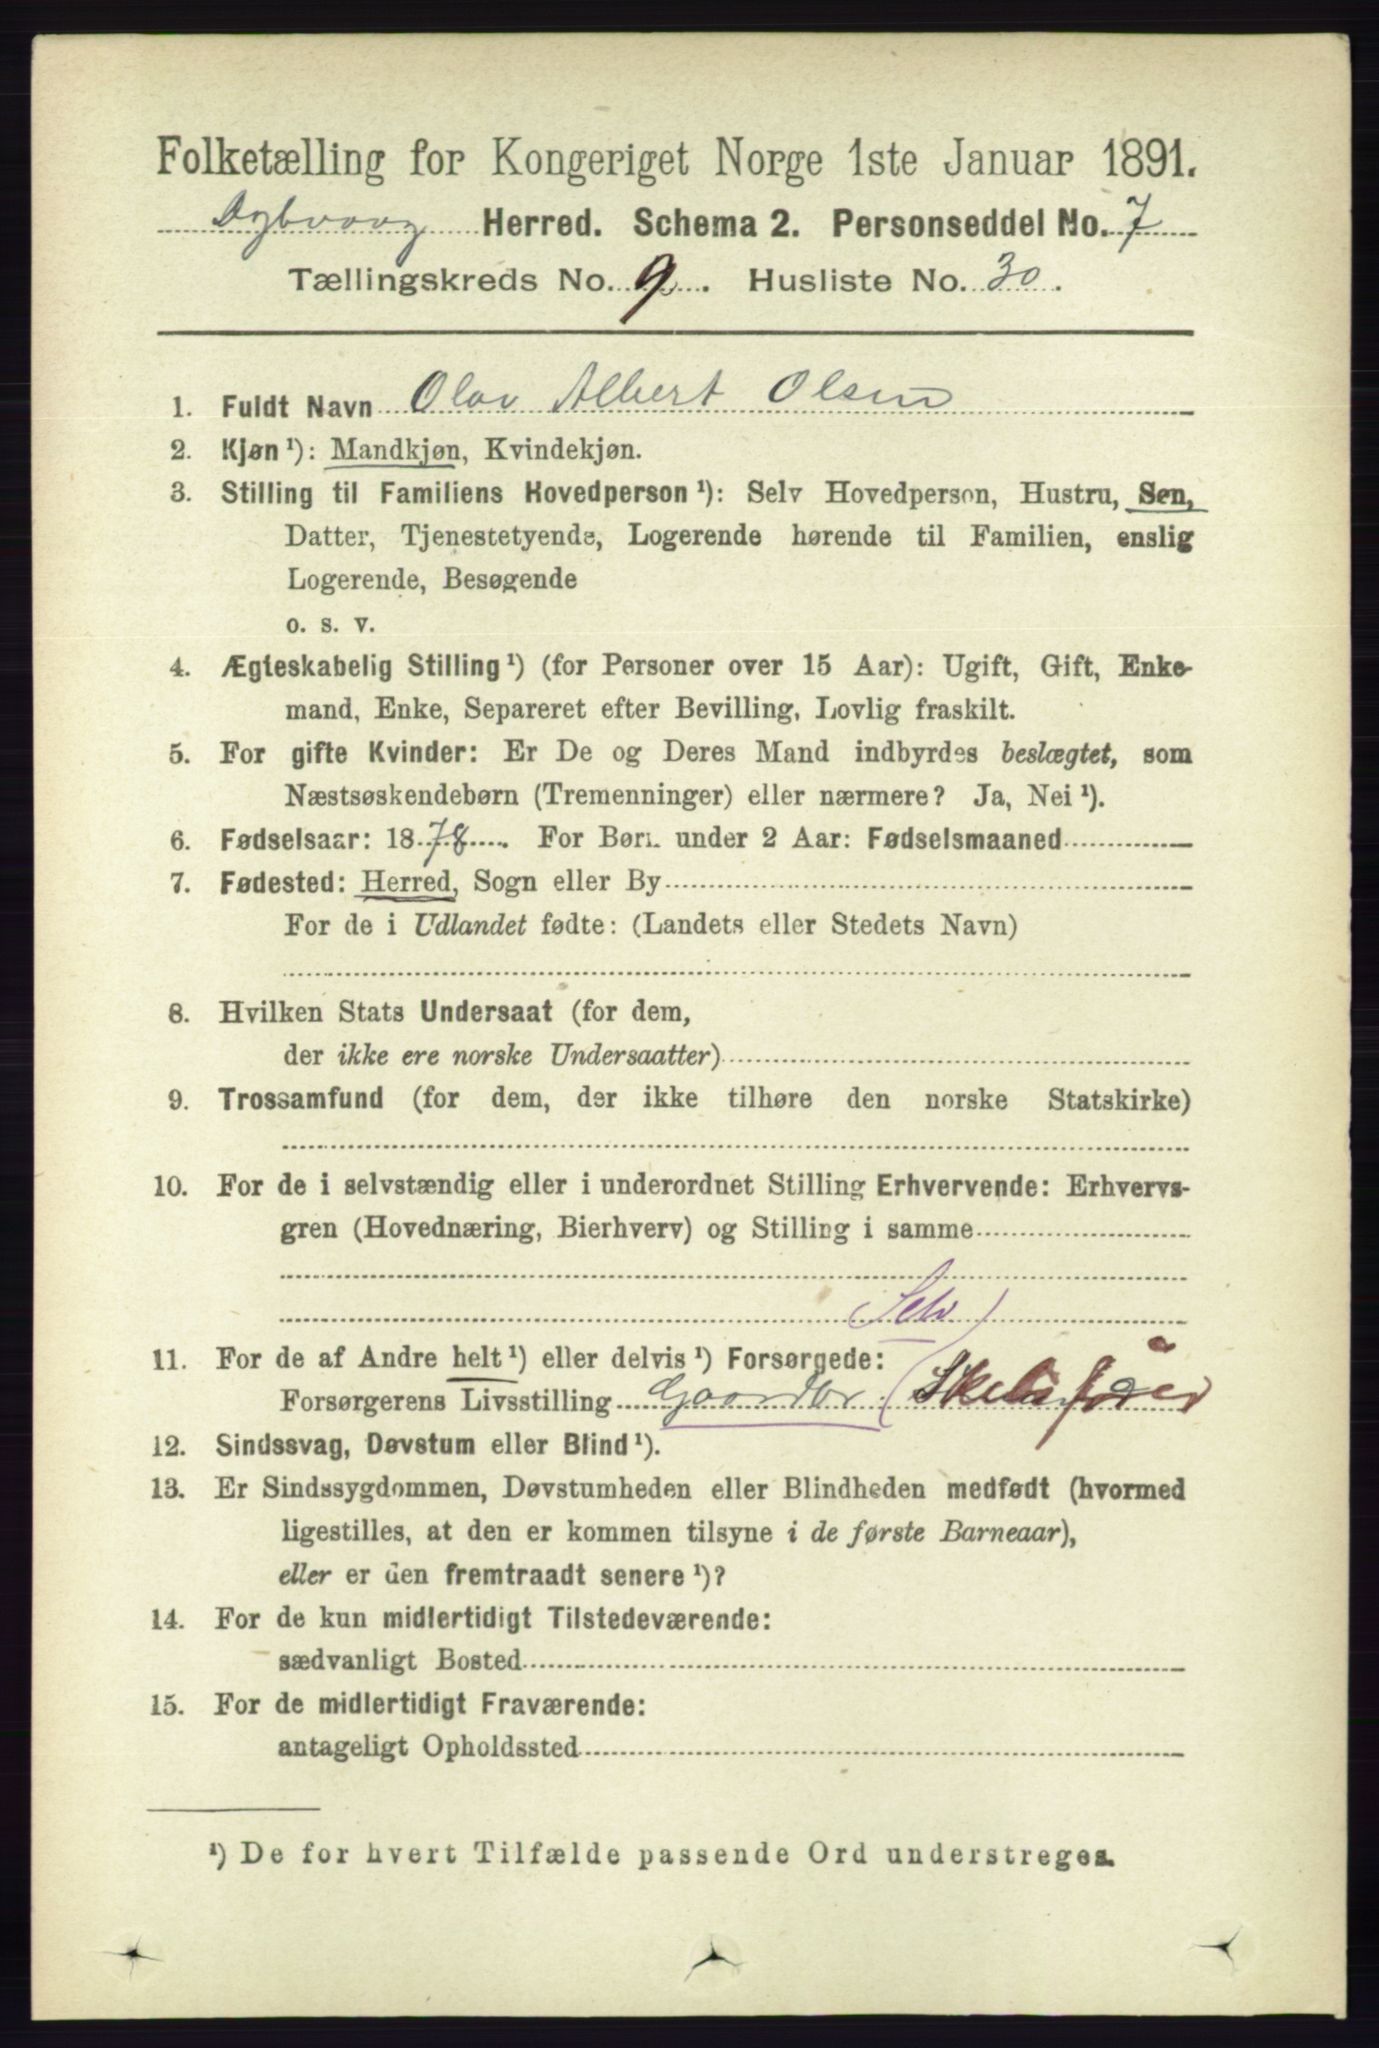 Folketælling for Kongeriget Norge 1ste Januar 1891.
Dybvaag Herred. Schema 2. Personseddel No. 7
Tællingskreds No. 9. Husliste No. 30.
1. Fuldt Navn Olav Albert Olsen
2. Kjøn ¹): Mandkjøn, Kvindekjøn.
3. Stilling til Familiens Hovedperson ¹): Selv Hovedperson, Hustru, Søn,
Datter, Tjenestetyende, Logerende hørende til Familien, enslig
Logerende, Besøgende
o. s. v.
4. Ægteskabelig Stilling ¹) (for Personer over 15 Aar): Ugift, Gift, Enke-
mand, Enke, Separeret efter Bevilling, Lovlig fraskilt.
5. For gifte Kvinder: Er De og Deres Mand indbyrdes beslægtet, som
Næstsøskendebørn (Tremenninger) eller nærmere? Ja, Nei ¹).
6. Fødselsaar: 1878. For Børn under 2 Aar: Fødselsmaaned
7. Fødested: Herred, Sogn eller By
For de i Udlandet fødte: (Landets eller Stedets Navn)
8. Hvilken Stats Undersaat (for dem,
der ikke ere norske Undersaatter)
9. Trossamfund (for dem, der ikke tilhøre den norske Statskirke)
10. For de i selvstændig eller i underordnet Stilling Erhvervende: Erhvervs-
gren (Hovednæring, Bierhverv) og Stilling i samme
(Selv)
11. For de af Andre helt ¹) eller delvis ¹) Forsørgede:
Forsørgerens Livsstilling Gaardbr (Skibsfører
12. Sindssvag, Døvstum eller Blind ¹).
13. Er Sindssygdommen, Døvstumheden eller Blindheden medfødt (hvormed
ligestilles, at den er kommen tilsyne i de første Barneaar),
eller er den fremtraadt senere ¹)?
14. For de kun midlertidigt Tilstedeværende:
sædvanligt Bosted
15. For de midlertidigt Fraværende:
antageligt Opholdssted
¹) De for hvert Tilfælde passende Ord understreges.